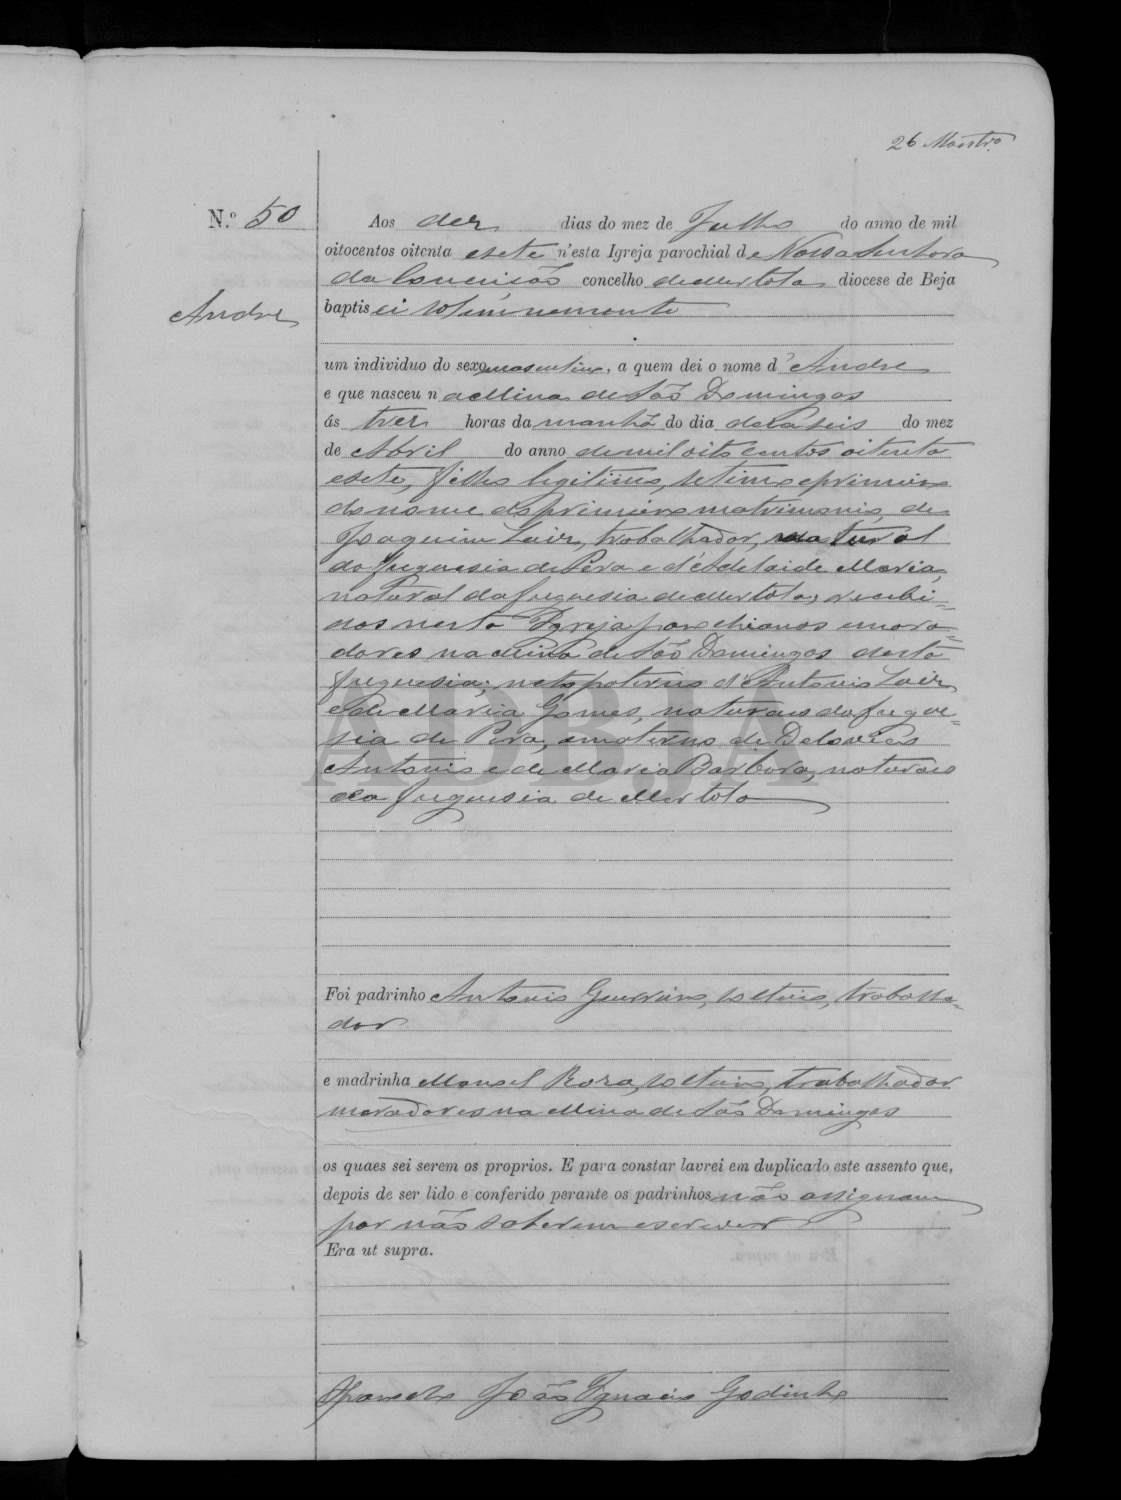 26 Monstrº
N.º 50
Aos dez dias do mez de Julho do anno de mil
oitocentos oitenta e sete n'esta Igreja parochial de Nossa Senhora
da Conceição concelho de Mertola diocese de Beja
Andre
baptisei solemnemente
um individuo do sexo masculino, a quem dei o nome d'Andre
e que nasceu na Mina de São Domingos
ás tres horas da manhã do dia dezaseis do mez
de Abril do anno de mil oito centos oitenta
e sete, filho legitimo, setimo e primeiro
do nome do primeiro matrimonio, de
Joaquim Luiz, trabalhador, natural
da freguesia de Pera e d'Adelaide Maria,
natural da freguesia de Mertola, recebi-
dos nesta Igreja parochianos e mora-
dores na Mina de São Domingos desta
freguesia; neto paterno d'Antonio Luiz
e de Maria Gomes, naturaes da fregue-
sia de Pera, e materno de
Antonio e de Maria Barbora, naturaes
da freguesia de Mertola
ADBJA
Foi padrinho Antonio Guerreiro, solteiro, trabalha-
dor
e madrinha Manoel Roza, solteiro, trabalhador
moradores na Mina de São Domingos
os quaes sei serem os proprios. E para constar lavrei em duplicado este assento que,
depois de ser lido e conferido perante os padrinhos não assignam
por não saberem escrever
Era ut supra.
O Parocho João Ignacio Godinho